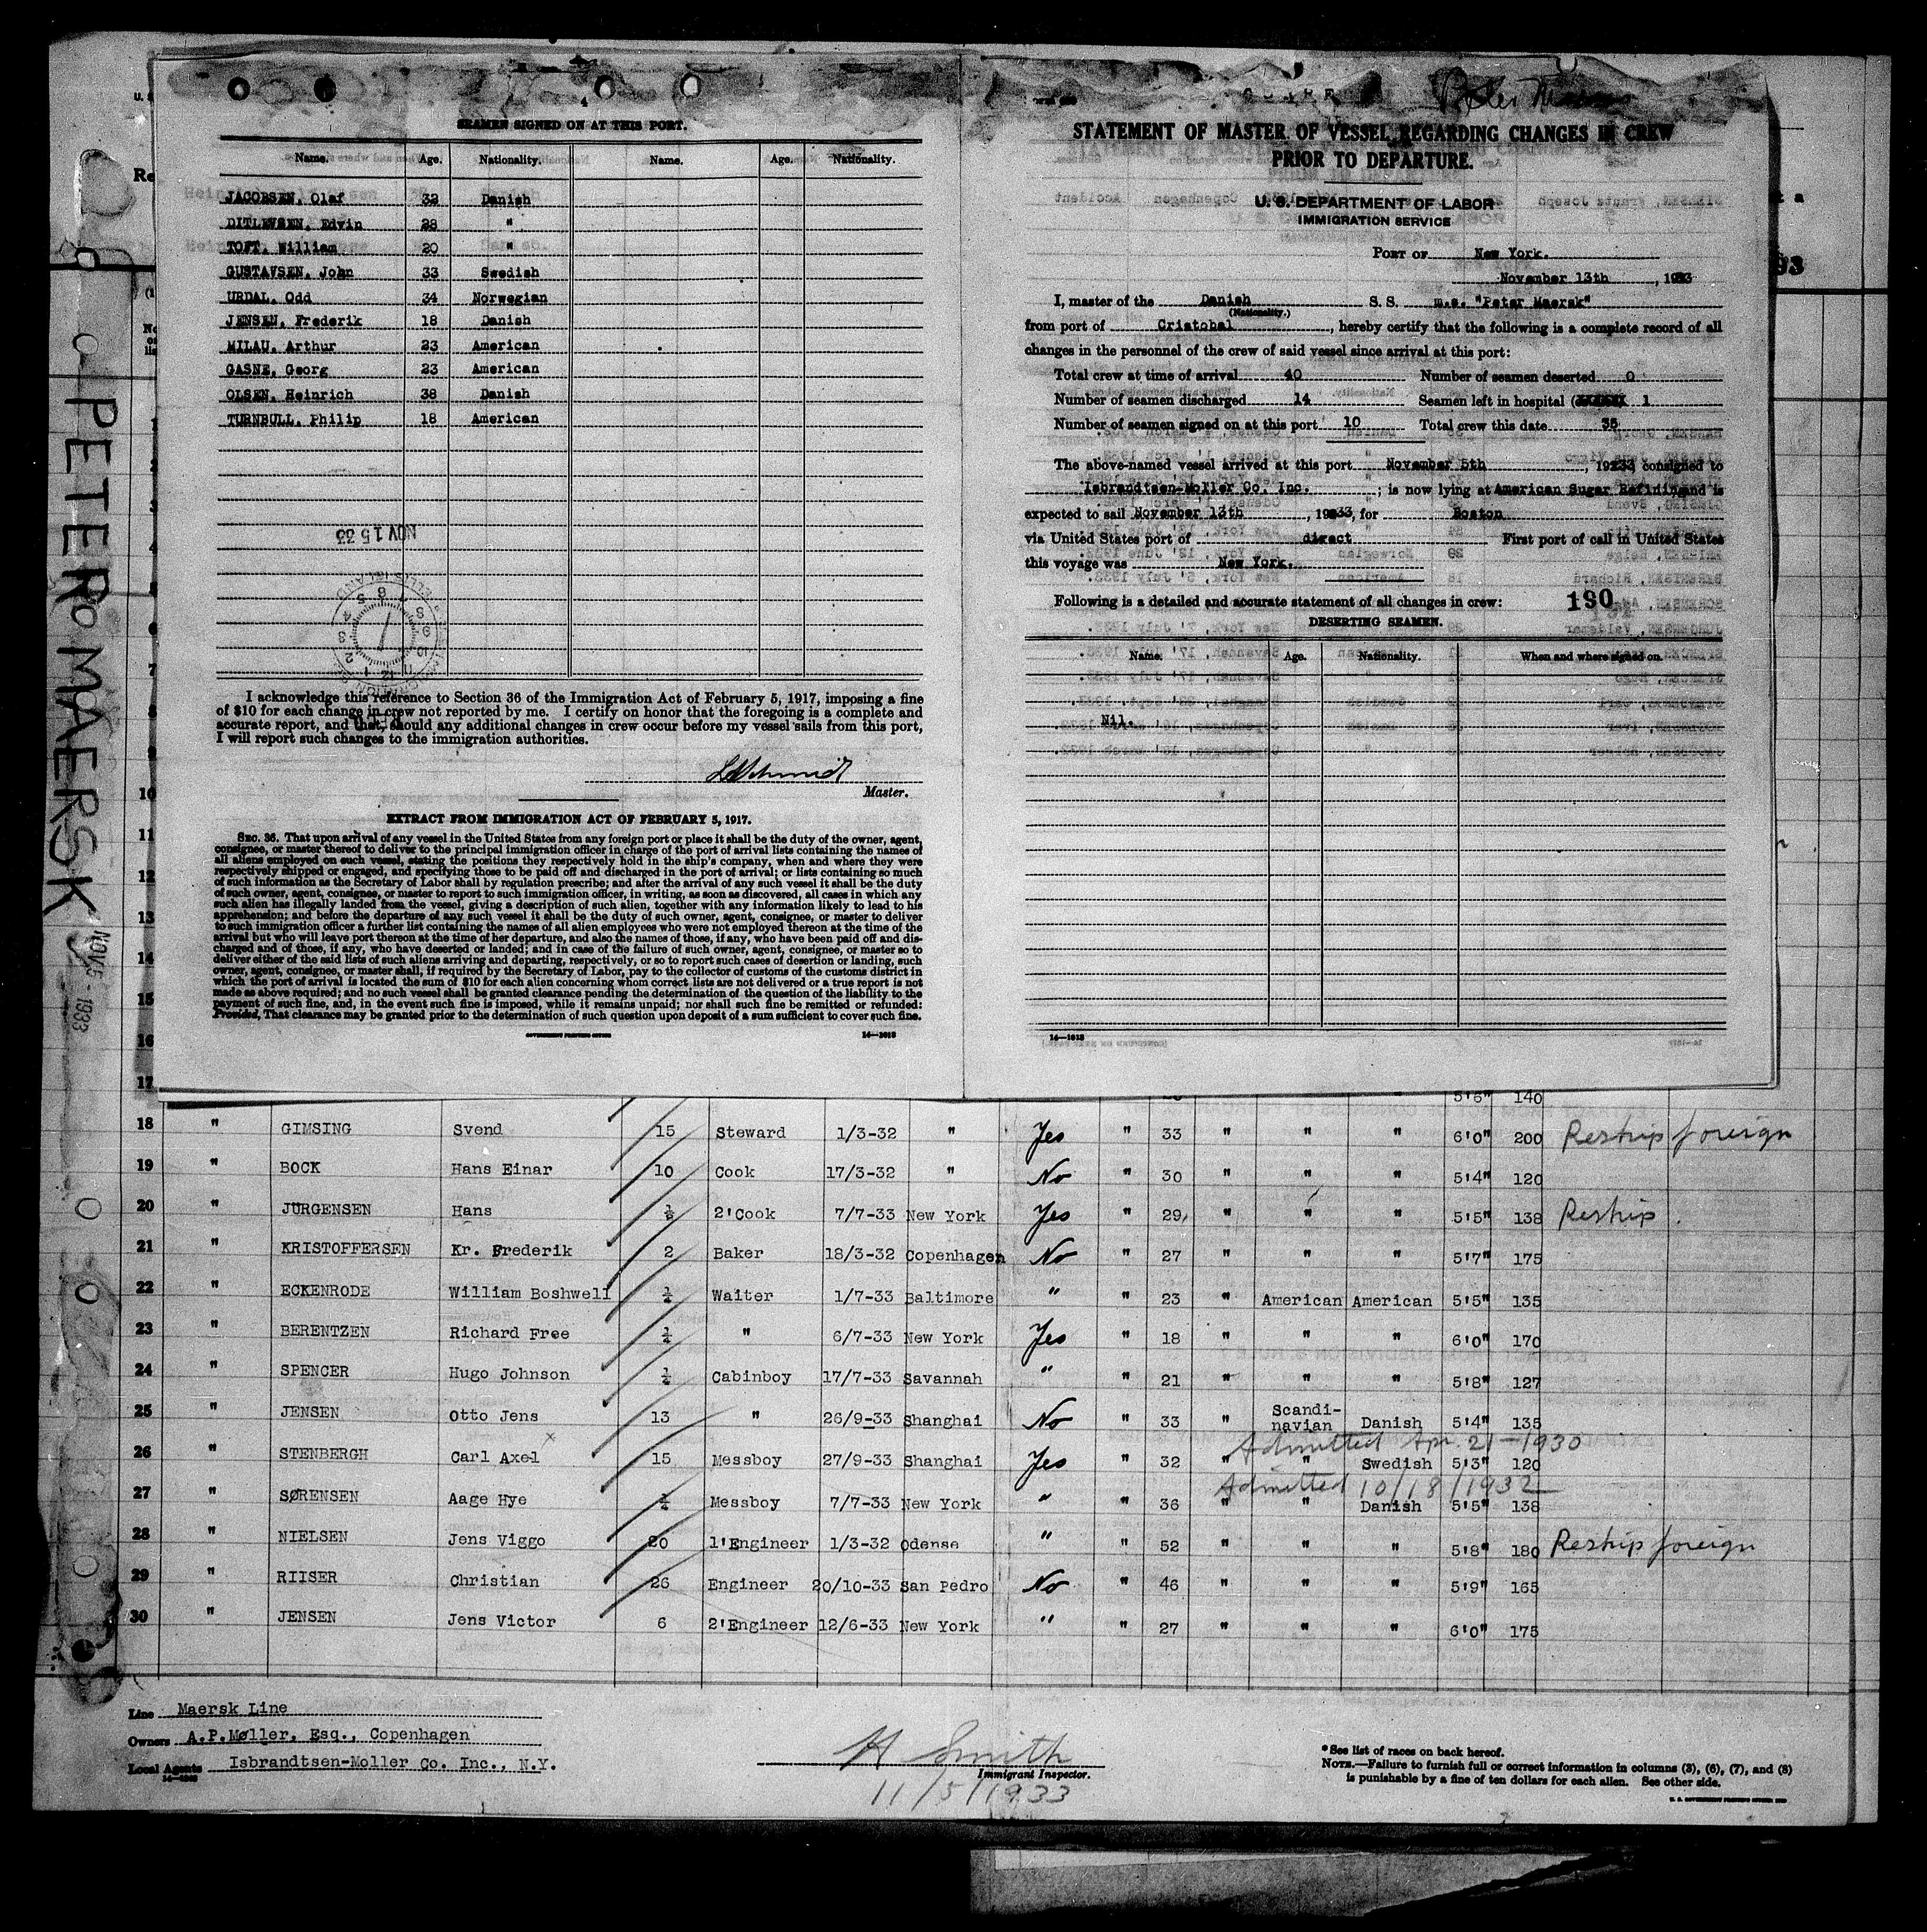 PETER MAERSK
NOV 5 - 1933
4
SEAMEN SIGNED ON AT THIS PORT.
Name. Age. Nationality. Name. Age. Nationality.
JACOBSEN, Olaf 32 Danish
DITLEVSEN, Edvin 28 "
TOFT, William 20 "
GUSTAVSEN, John 33 Swedish
URDAL, Odd 34 Norwegian
JENSEN, Frederik 18 Danish
MILAU, Arthur 23 American
GASNE, Georg 23 American
OLSEN, Heinrich 38 Danish
TURNBULL, Philip 18 American
NOV 15 33
I acknowledge this reference to Section 36 of the Immigration Act of February 5, 1917, imposing a fine
of $10 for each change in crew not reported by me. I certify on honor that the foregoing is a complete and
accurate report, and that, should any additional changes in crew occur before my vessel sails from this port,
I will report such changes to the immigration authorities.
Master.
EXTRACT FROM IMMIGRATION ACT OF FEBRUARY 5, 1917.
SEC. 36. That upon arrival of any vessel in the United States from any foreign port or place it shall be the duty of the owner, agent,
consignee, or master thereof to deliver to the principal immigration officer in charge of the port of arrival lists containing the names of
all aliens employed on such vessel, stating the positions they respectively hold in the ship's company, when and where they were
respectively shipped or engaged, and specifying those to be paid off and discharged in the port of arrival; or lists containing so much
of such information as the Secretary of Labor shall by regulation prescribe; and after the arrival of any such vessel it shall be the duty
of such owner, agent, consignee, or master to report to such immigration officer, in writing, as soon as discovered, all cases in which any
such alien has illegally landed from the vessel, giving a description of such alien, together with any information likely to lead to his
apprehension; and before the departure of any such vessel it shall be the duty of such owner, agent, consignee, or master to deliver
to such immigration officer a further list containing the names of all alien employees who were not employed thereon at the time of the
arrival but who will leave port thereon at the time of her departure, and also the names of those, if any, who have been paid off and dis-
charged and of those, if any, who have deserted or landed; and in case of the failure of such owner, agent, consignee, or master so to
deliver either of the said lists of such aliens arriving and departing, respectively, or so to report such cases of desertion or landing, such
owner, agent, consignee, or master shall, if required by the Secretary of Labor, pay to the collector of customs of the customs district in
which the port of arrival is located the sum of $10 for each alien concerning whom correct lists are not delivered or a true report is not
made as above required; and no such vessel shall be granted clearance pending the determination of the question of the liability to the
payment of such fine, and, in the event such fine is imposed, while it remains unpaid; nor shall such fine be remitted or refunded:
Provided, That clearance may be granted prior to the determination of such question upon deposit of a sum sufficient to cover such fine.
GOVERNMENT PRINTING OFFICE 14—1613
STATEMENT OF MASTER OF VESSEL REGARDING CHANGES IN CREW
PRIOR TO DEPARTURE.
U. S. DEPARTMENT OF LABOR
IMMIGRATION SERVICE
PORT OF New York.
November 13th, 1933
I, master of the Danish S. S. m.s. "Peter Maersk"
(Nationality.)
from port of Cristobal, hereby certify that the following is a complete record of all
changes in the personnel of the crew of said vessel since arrival at this port:
Total crew at time of arrival 40 Number of seamen deserted 0
Number of seamen discharged 14 Seamen left in hospital 1
Number of seamen signed on at this port 10 Total crew this date 35
The above-named vessel arrived at this port November 5th, 1933, consigned to
Isbrandtsen-Moller Co. Inc.; is now lying at American Sugar Refining and is
expected to sail November 13th, 1933, for Boston
via United States port of direct First port of call in United States
this voyage was New York.
Following is a detailed and accurate statement of all changes in crew: 190
DESERTING SEAMEN.
Name. Age. Nationality. When and where signed on.
Nil.
14—1613
10
11
12
13
14
15
16
17 5'6" 140
18 " GIMSING Svend 15 Steward 1/3-32 " Yes " 33 " " " 6'0" 200 Reship foreign
19 " BOCK Hans Einar 10 Cook 17/3-32 " No " 30 " " " 5'4" 120
20 " JURGENSEN Hans 2'Cook 7/7-33 New York Yes " 29 " " " 5'5" 138 Reship
21 " KRISTOFFERSEN Kr. Frederik 2 Baker 18/3-32 Copenhagen No " 27 " " " 5'7" 175
22 " ECKENRODE William Boshwell ¼ Waiter 1/7-33 Baltimore " " 23 " American American 5'5" 135
23 " BERENTZEN Richard Free ¼ " 6/7-33 New York Yes " 18 " " " 6'0" 170
24 " SPENCER Hugo Johnson ¼ Cabinboy 17/7-33 Savannah " " 21 " " " 5'8" 127
25 " JENSEN Otto Jens 13 " 26/9-33 Shanghai No " 33 " Scandi-navian Danish 5'4" 135
Admitted Apr. 21-1930
26 " STENBERGH Carl Axel 15 Messboy 27/9-33 Shanghai Yes " 32 " " Swedish 5'3" 120
Admitted 10/18/1932
27 " SØRENSEN Aage Hye ¼ Messboy 7/7-33 New York " " 36 " " Danish 5'5" 138
28 " NIELSEN Jens Viggo 20 1'Engineer 1/3-32 Odense " " 52 " " " 5'8" 180 Reship foreign
29 " RIISER Christian 26 Engineer 20/10-33 San Pedro No " 46 " " " 5'9" 165
30 " JENSEN Jens Victor 6 2'Engineer 12/6-33 New York " " 27 " " " 6'0" 175
Line Maersk Line
Owners A.P.Møller, Esq., Copenhagen
Local Agents Isbrandtsen-Moller Co. Inc., N.Y.
H Smith
Immigrant Inspector.
11/5/1933
* See list of races on back hereof.
NOTE.—Failure to furnish full or correct information in columns (3), (6), (7), and (8)
is punishable by a fine of ten dollars for each alien. See other side.